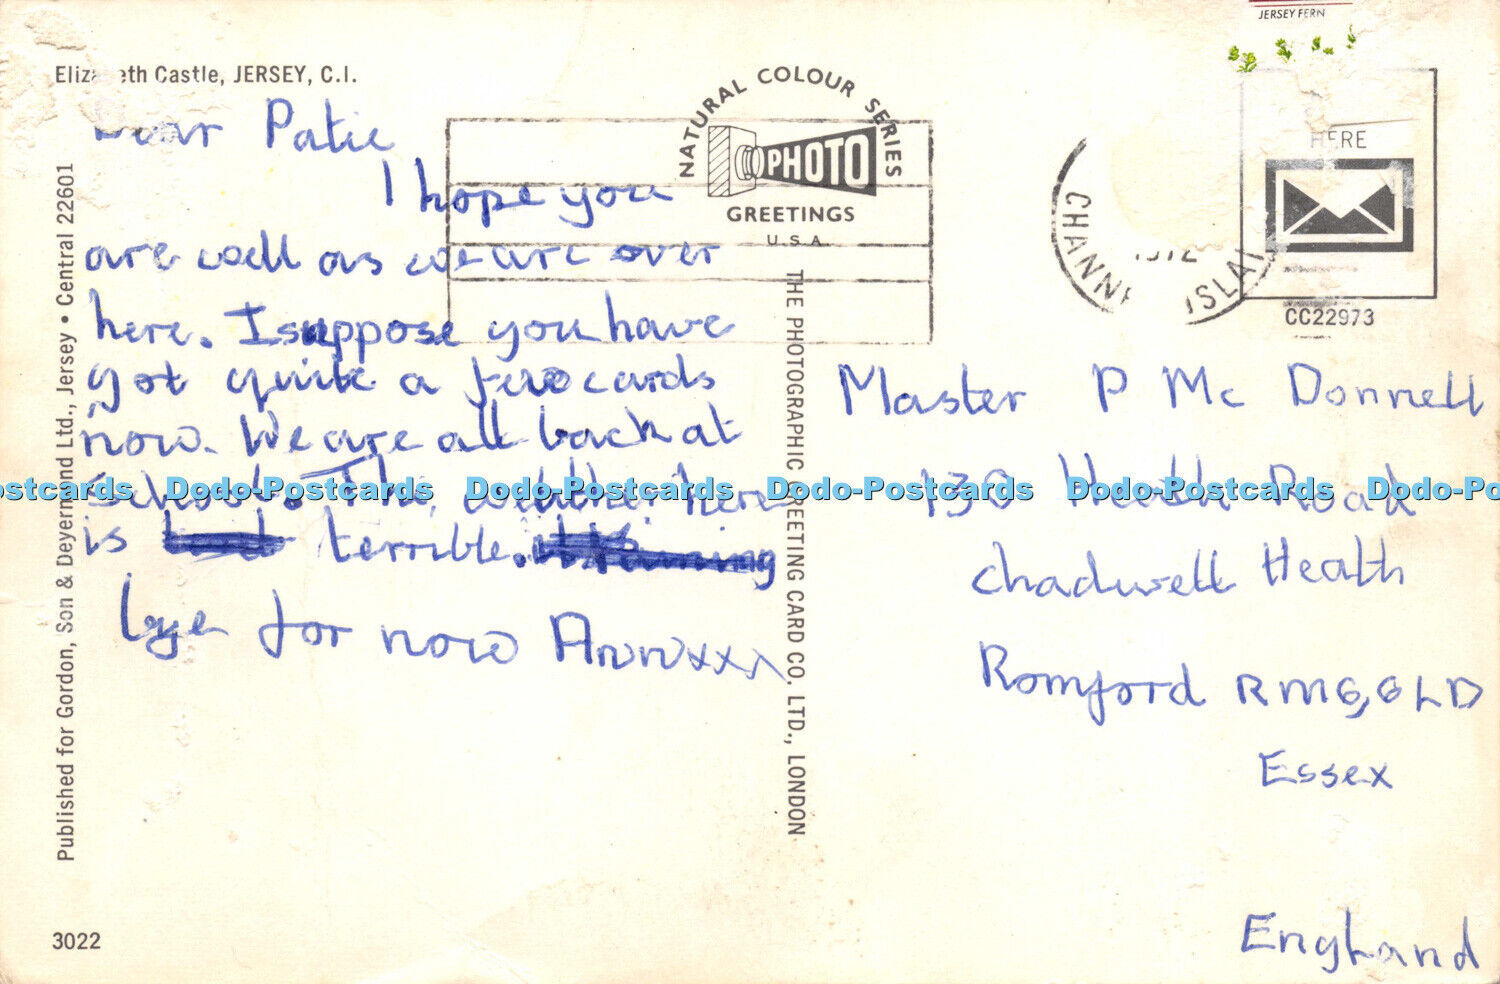 JERSEY FERN
Elizabeth Castle, JERSEY, C.I.
NATURAL COLOUR SERIES
PHOTO
GREETINGS
U.S.A.
HERE
CHANNEL ISLA
1972
CC22973
Dear Patie
I hope you
are well as we are over
here. I suppose you have
got quite a few cards
now. We are all back at
school. The weather here
is terrible.
bye for now Ann xxx
Master P Mc Donnell
130 Heath Road
Chadwell Heath
Romford RM6, 6LD
Essex
England
Published for Gordon, Son & Deyermond Ltd., Jersey • Central 22601
THE PHOTOGRAPHIC GREETING CARD CO. LTD., LONDON
3022
ostcards Dodo-Postcards Dodo-Postcards Dodo-Postcards Dodo-Postcards Dodo-Po